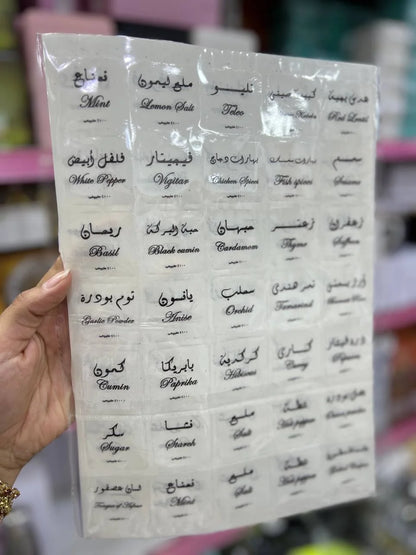 نعناع
Mint
ملح ليمون
Lemon Salt
تليو
Teleo
هدس بصية
Red Lentil
فلفل أبيض
White Pepper
فيجيتار
Vigitar
بهارات دجاج
Chicken Spices
بهارات سمك
Fish spices
سمسم
Sesame
ريحان
Basil
حبة البركة
Black cumin
حبهان
Cardamom
زعتر
Thyme
زعفران
Saffron
ثوم بودرة
Garlic Powder
يانسون
Anise
سحلب
Orchid
تمر هندي
Tamarind
كمون
Cumin
بابريكا
Paprika
كركدية
Hibiscus
كاري
Curry
سكر
Sugar
نشا
Starch
ملح
Salt
شطة
Hot pepper
لسان عصفور
Tongue of
نعناع
Mint
ملح
Salt
شطة
Hot pepper